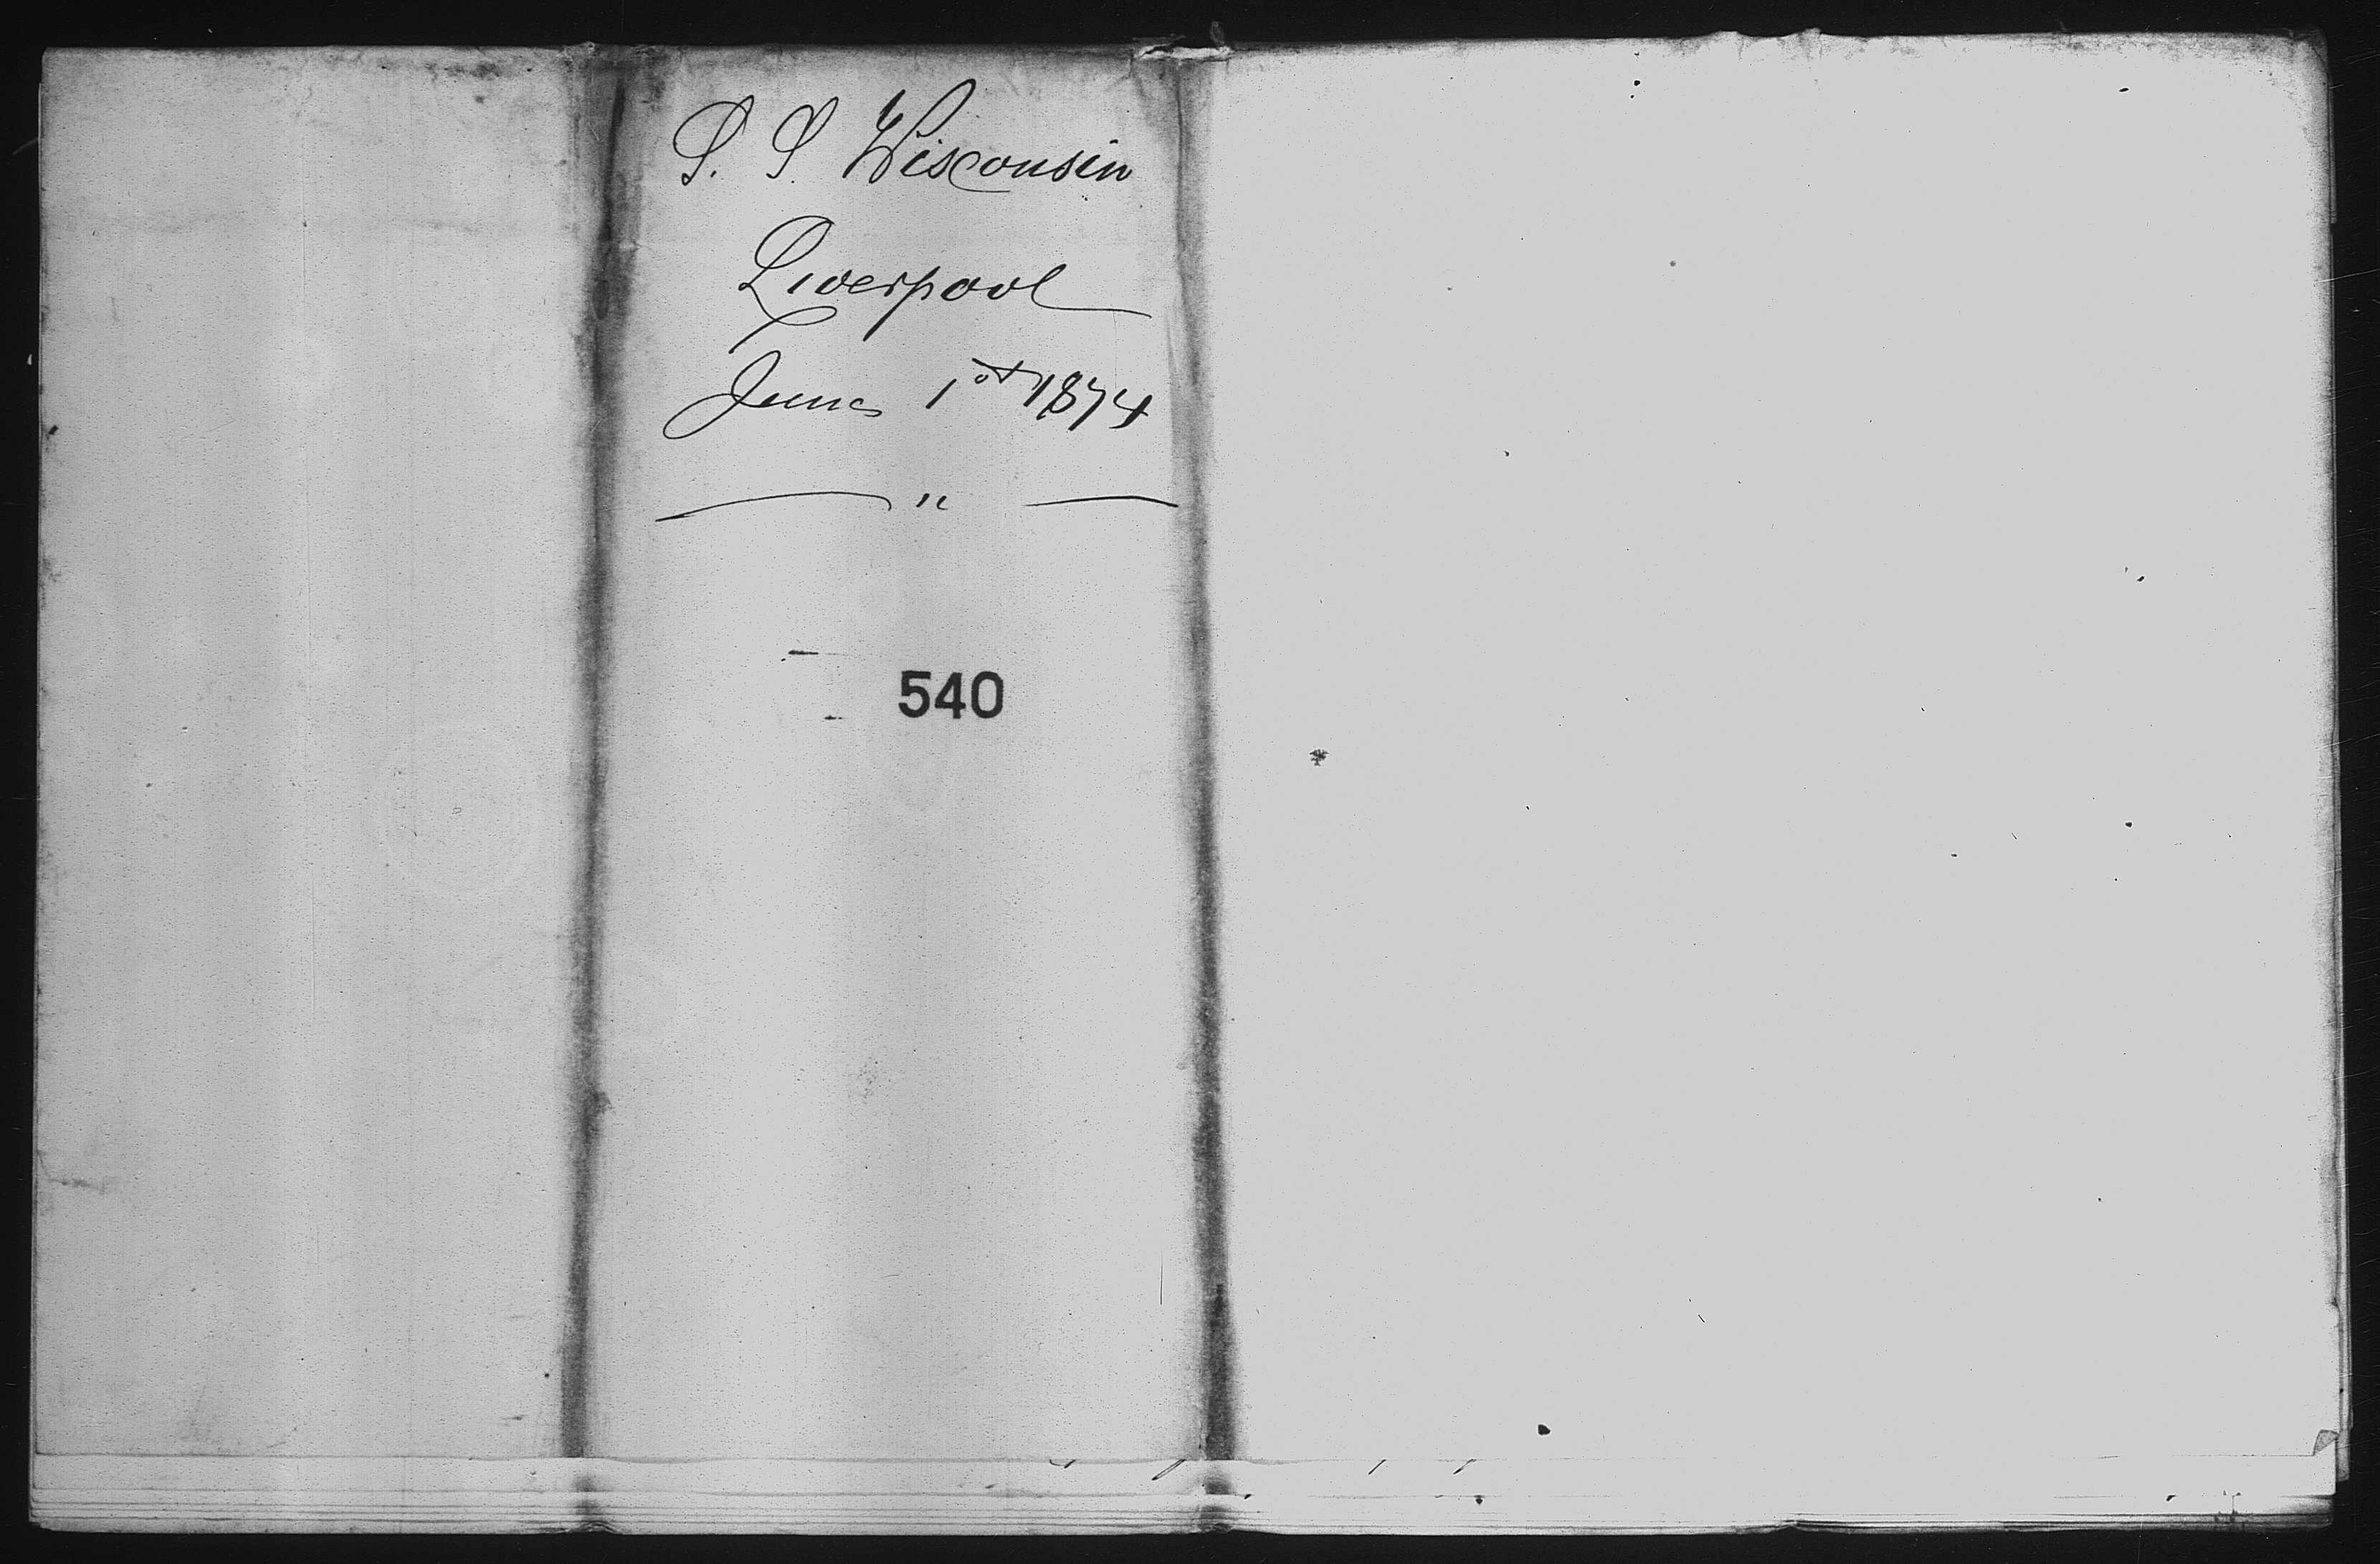 S. S. Wisconsin
Liverpool
June 1st 1874
— " —
540